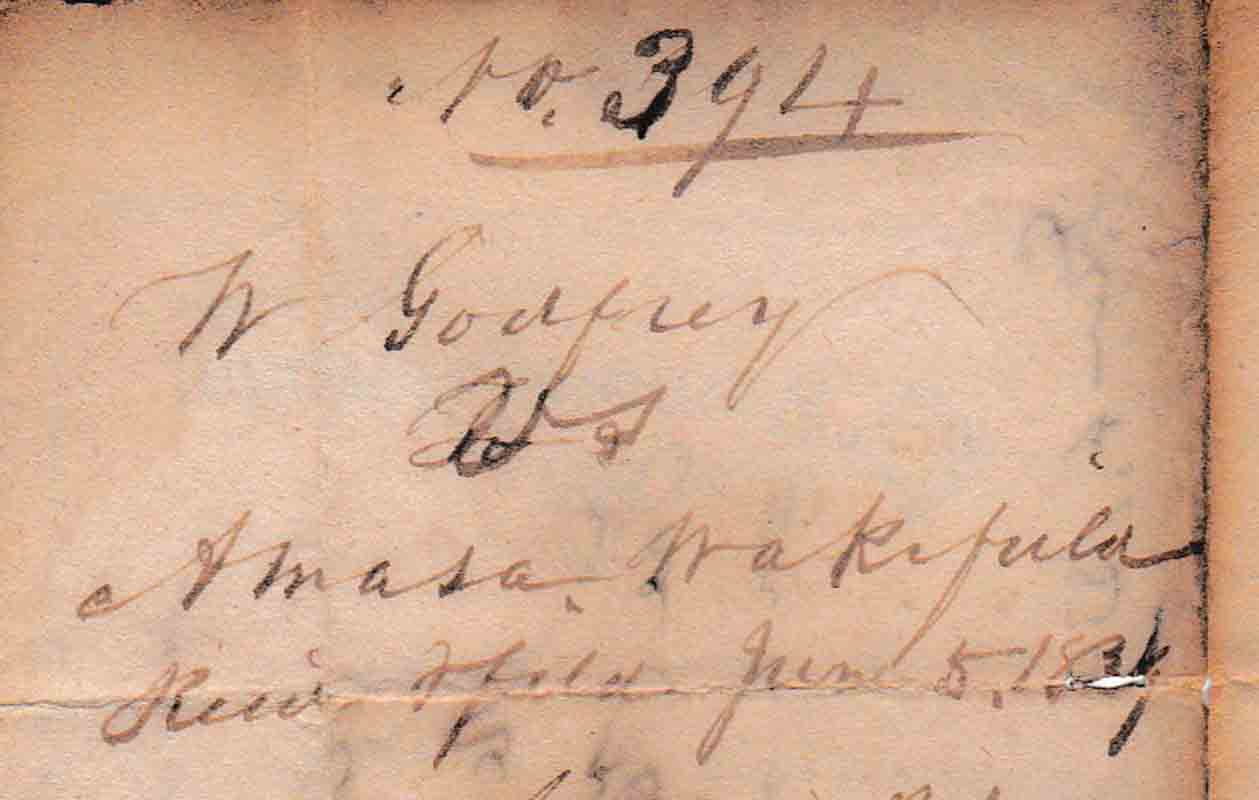 No. 394
W Godfrey
Vs
Amasa Wakefield
Recd. & filed June 5. 1834